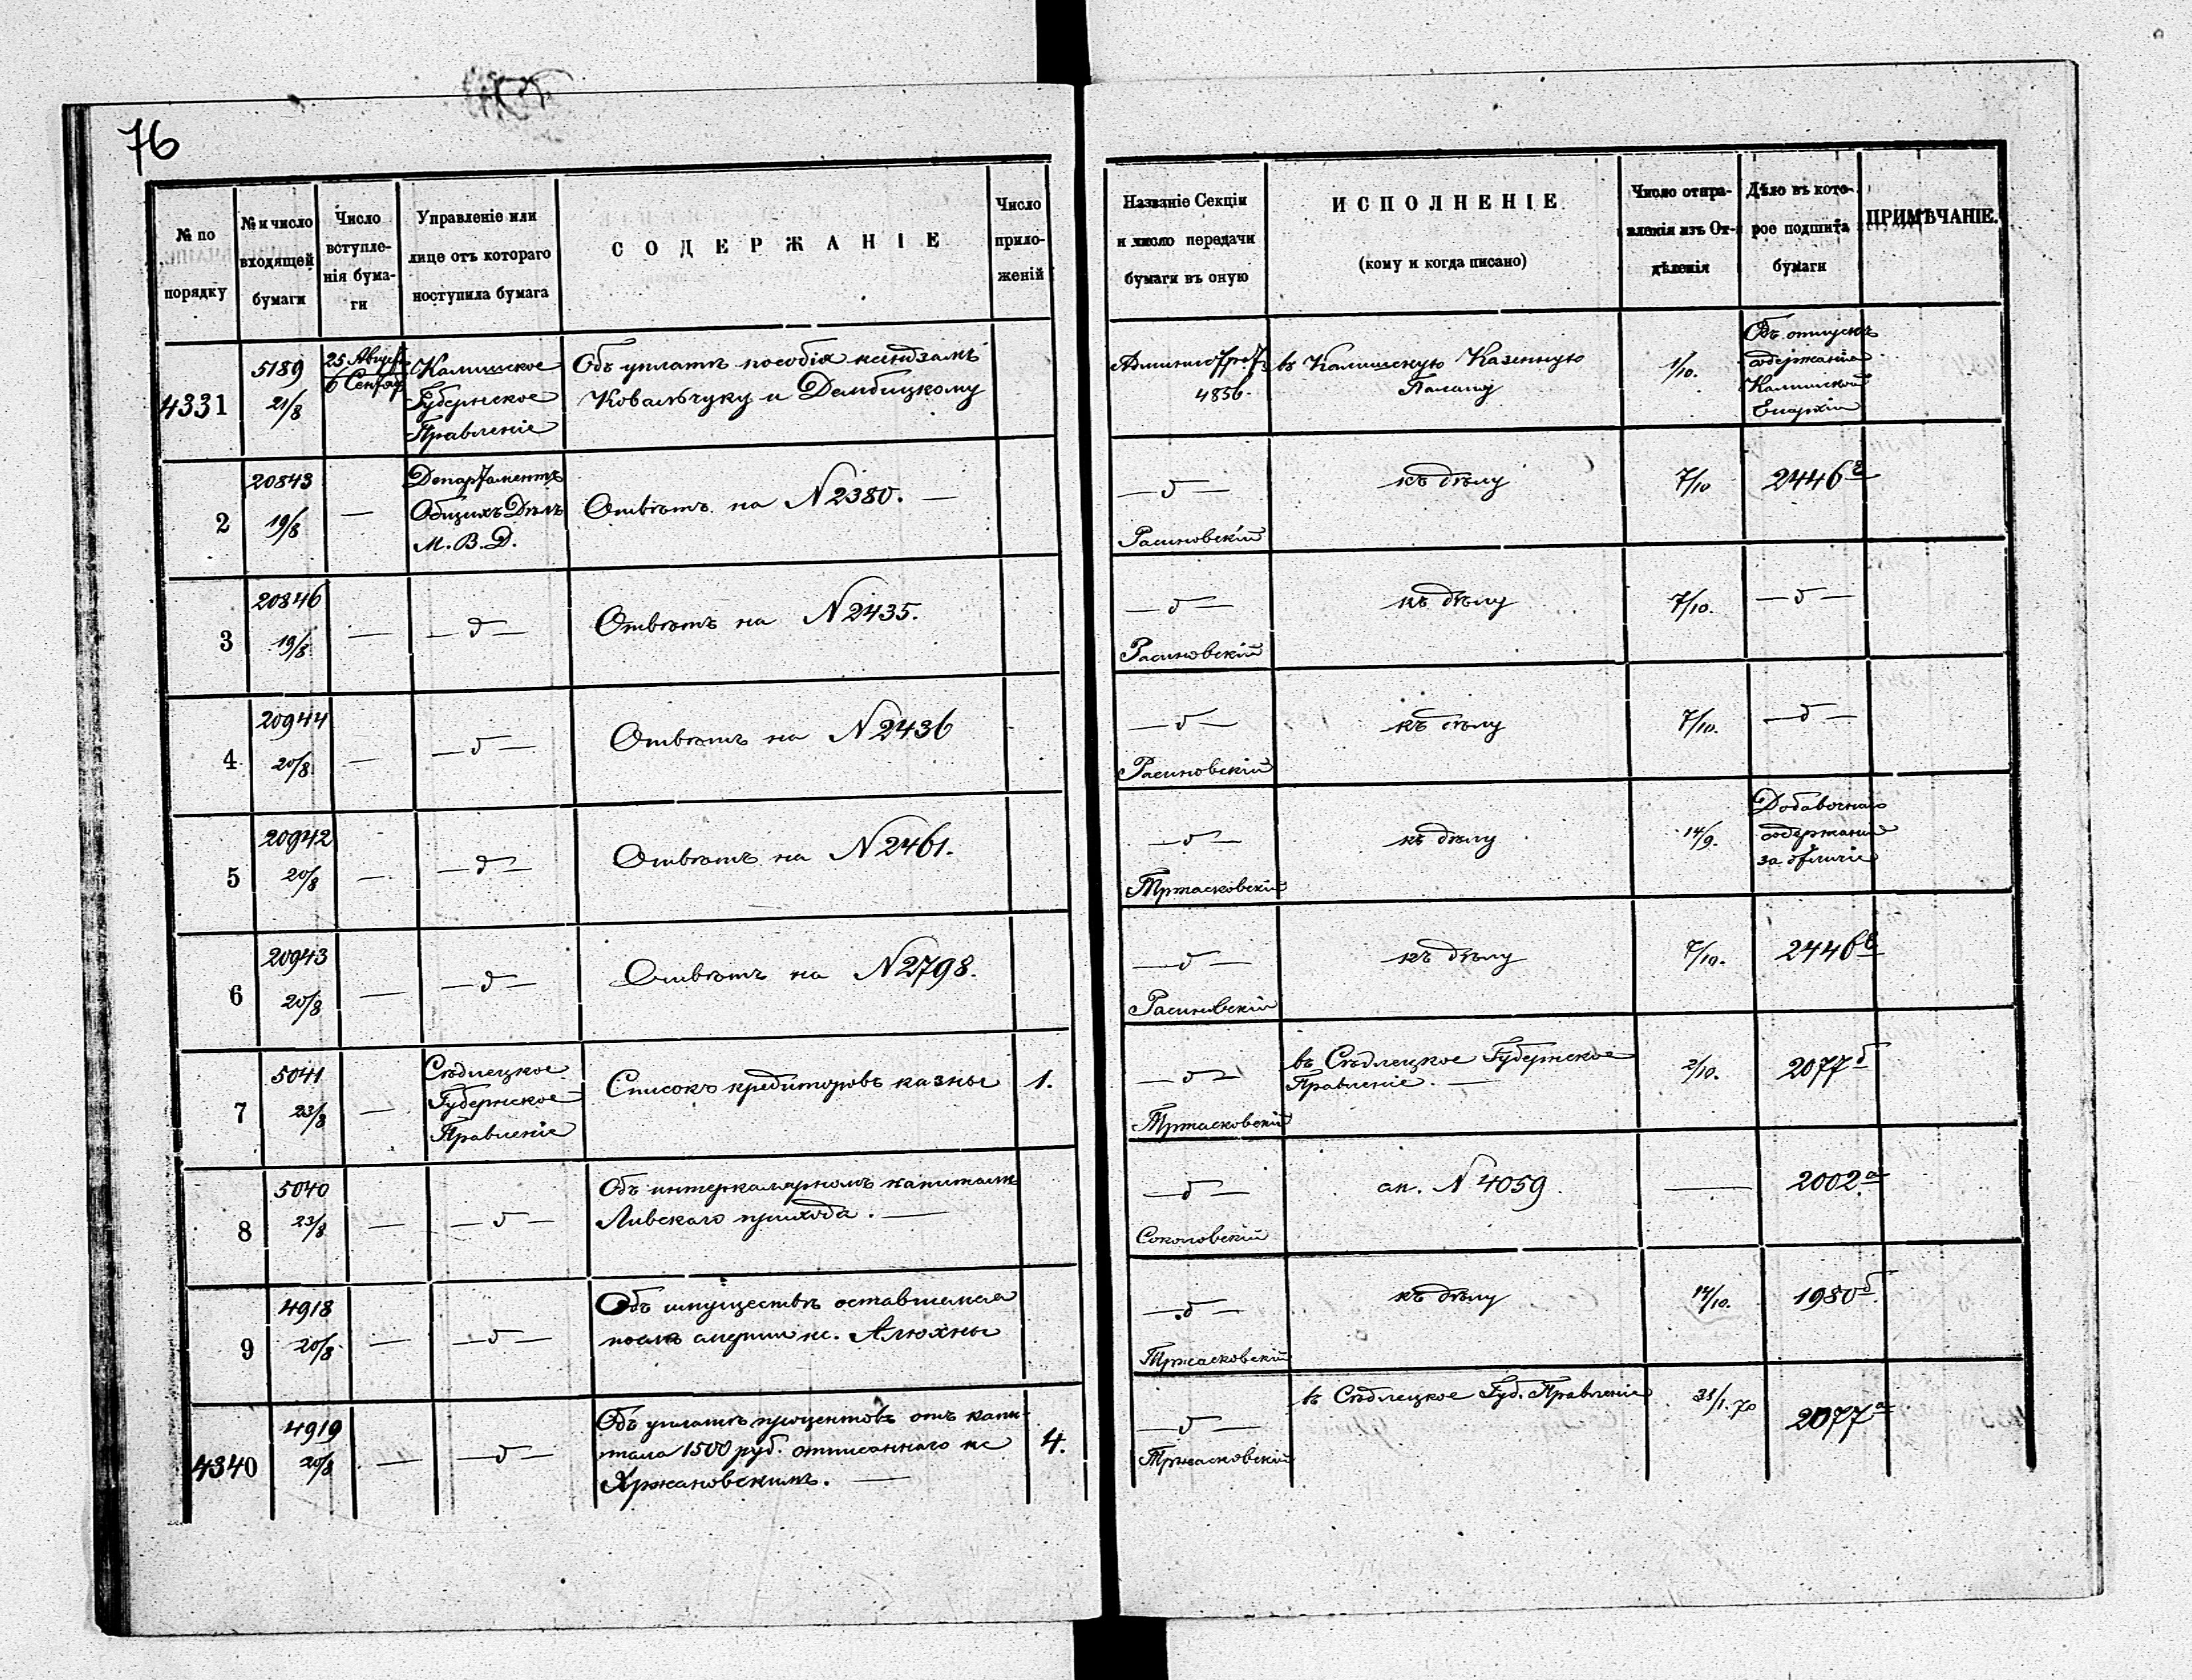 76
№ по порядку
№ и число входящей бумаги
Число вступле-
нія бума-
ги
Управленіе или
лице отъ котораго
поступила бумага
СОДЕРЖАНІЕ
Число
прило-
женій
Названіе Секціи
и число передачи
бумаги въ оную
ИСПОЛНЕНІЕ
(кому и когда писано)
Число отпра-
вленія изъ От-
дѣленія
Дѣло въ кото-
рое подшита
бумаги
ПРИМѢЧАНІЕ.
4331
5189
21/8
25 Август
6 Сентяб
Калишское
Губернское
Правленіе
Объ уплатѣ пособія ксендзамъ
Ковальчуку и Дембицкому
4856.
въ Калишскую Казенную
Палату
1/10.
Объ отпускѣ
содержанія
Калишской
Епархіи
2
20843
19/8
—
Департаментъ
Общихъ Дѣлъ
М. В. Д.
Отвѣтъ на N 2380. —
— д —
Расиновскій
къ дѣлу
7/10
2446
3
20846
19/8
—
— д —
Отвѣтъ на N 2435.
— д —
Расиновскій
къ дѣлу
7/10.
— д —
4
20944
20/8.
—
— д —
Отвѣтъ на N 2436
— д —
Расиновскій
къ дѣлу
7/10.
— д —
5
20942
20/8
—
— д —
Отвѣтъ на N 2461.
— д —
Тржасковскій
къ дѣлу
14/9.
Добавочнаго
содержанія
за отличіе
6
20943
20/8
—
— д —
Отвѣтъ на N 2798.
— д —
Расиновскій
къ дѣлу
7/10.
2446 в
7
5041
23/8
—
Сѣдлецкое
Губернское
Правленіе
Списокъ кредиторовъ казны
1.
— д —
Тржасковскій
въ Сѣдлецкое Губернское
Правленіе. —
2/10.
2077 б
8
5040
23/8
—
— д —
Объ интеркалярномъ капиталѣ
Ливскаго прихода. —
— д —
Соколовскій
ап. N 4059.
—
2002 а
9
4918
20/8.
—
— д —
Объ имуществѣ оставшемся
послѣ смерти кс. Алюхны
— д —
Тржасковскій
къ дѣлу
14/10.
1980 б.
4340
4919
20/8
—
— д —
Объ уплатѣ процентовъ отъ капи-
тала 1500 руб. отписаннаго кс
Яржановскимъ. —
4.
— д —
Тржасковскій
въ Сѣдлецкое Губ. Правленіе
31/1. 70
2077 а